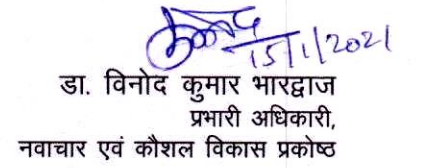 15/1/2021
डा. विनोद कुमार भारद्वाज
प्रभारी अधिकारी,
नवाचार एवं कौशल विकास प्रकोष्ठ